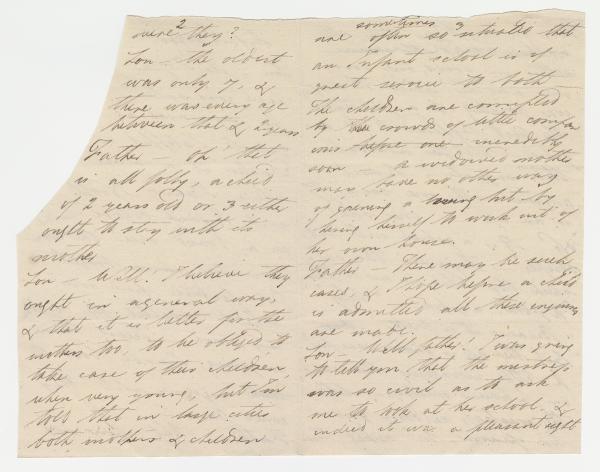 2
were they?
Son - the oldest
was only 7, &
there was every age
between that & 2 years
Father - Oh! that
is all folly, a child
of 2 years old or 3 either
ought to stay with its
mother
Son - Well. I believe they
ought in a general way,
& that it is better for the
mothers too, to be obliged to
take care of their children,
when very young, but I'm
told that in large cities
both mothers & children
3
sometimes
are often so situated that
an Infant school is of
great service to both -
The children are corrupted
by the crowds of little compan
ions before one
soon - a widowed mother
may have no other way
of gaining a living but by
hiring herself to work out of
her own house.
Father - There may be such
cases, & I hope before a child
is admitted all these enquiries
are made.
Son - Well father! I was going
to tell you that the mistress
was so civil as to ask
me to look at her school, &
indeed it was a pleasant sight